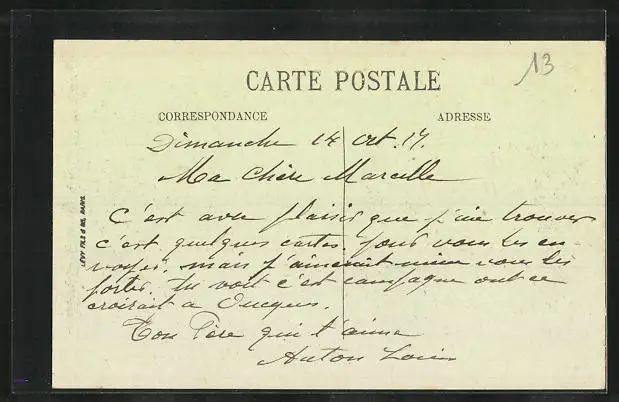 13
CARTE POSTALE
CORRESPONDANCE
ADRESSE
Dimanche 14 Oct. 17.
Ma Chère Marcelle
C'est avec plaisir que j'aie trouver
c'est quelques cartes. pour vous les en-
voyer. mais j'aimerait mieu vous les
porter. tu voit c'est campagne ont ce
croirait a
Ton Père qui t'aime
Anton Louis
LÉVY FILS & CIE, PARIS